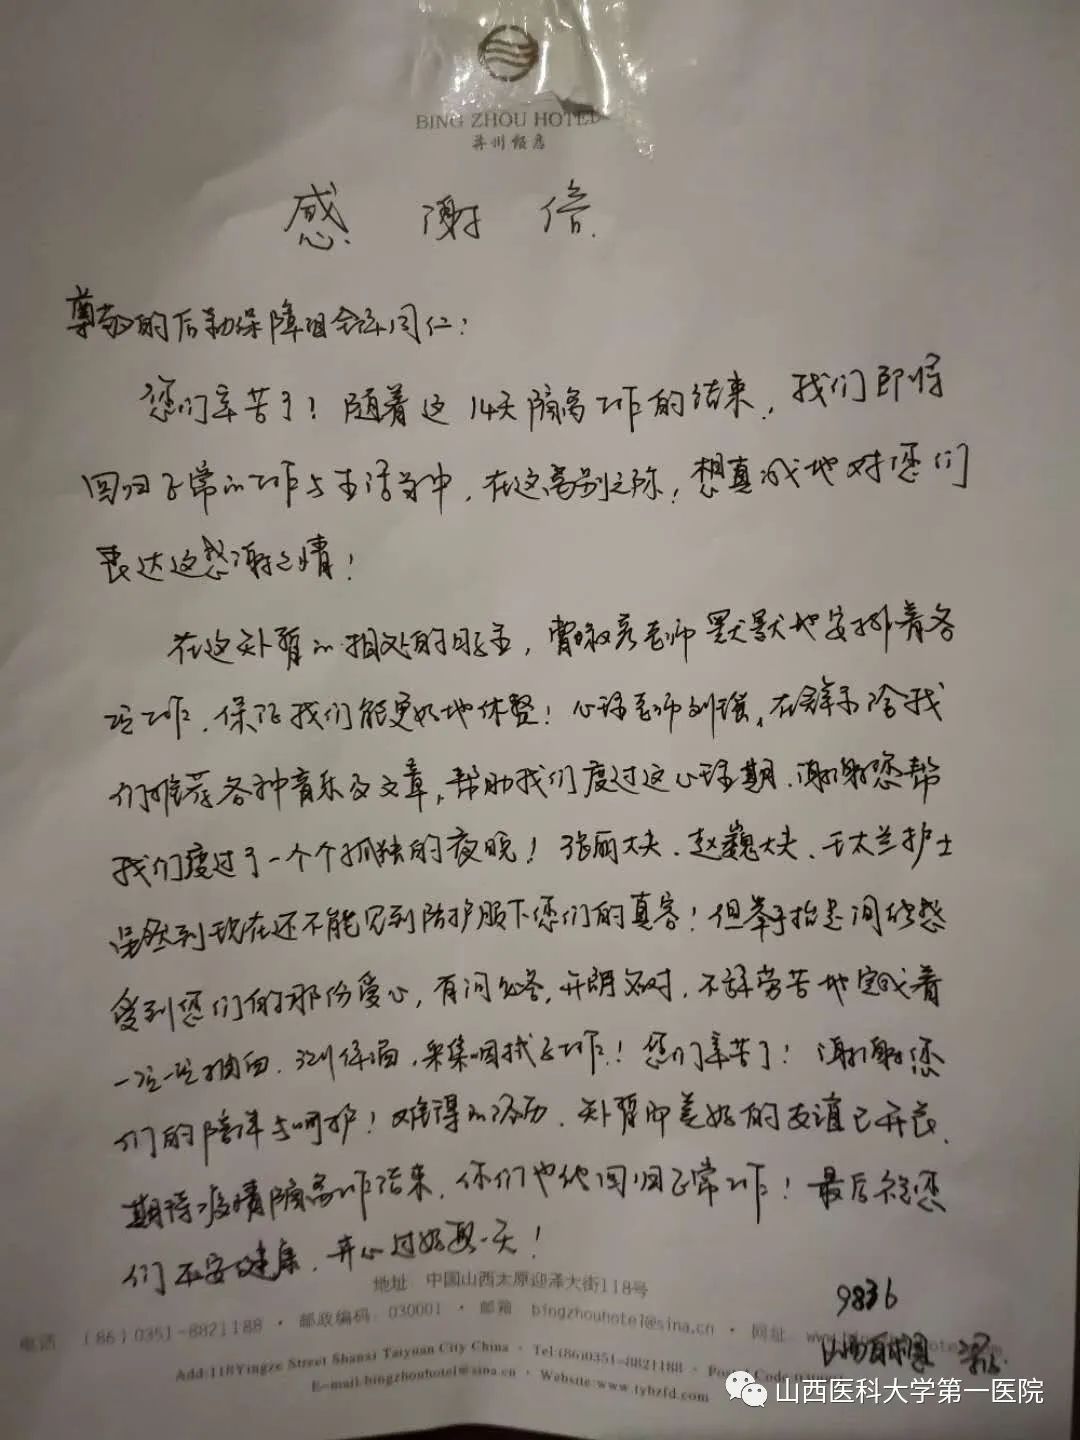 BING ZHOU HOTEL
并州饭店
感谢信
尊敬的后勤保障组全体同仁：
您们辛苦了！随着这14天隔离工作的结束，我们即将
回归正常的工作与生活当中，在这离别之际，想真诚地对您们
表达这感谢之情！
在这短暂的相处的日子里，老师默默地安排着各
项工作，保证我们能更好地休整！心理老师刘瑶，在群里给我
们推荐各种音乐及文章，帮助我们度过这心理期，谢谢您帮
我们度过了一个个孤独的夜晚！张丽大夫、赵巍大夫、王太兰护士
虽然到现在还不能见到防护服下您们的真容！但举手抬足间能感
受到您们的那份爱心，有问必答，开朗应对，不辞劳苦地完成着
一项一项抽血、测体温，采集咽拭子工作！您们辛苦了！谢谢您
们的陪伴与呵护！难得的经历，短暂即美好的友谊已开花，
期待疫情隔离工作结束，你们也能回归正常工作！最后祝您
们平安健康，开心过好每一天！
9836
山西
地址 中国山西太原迎泽大街118号
电话 (86)0351-8821188 · 邮政编码：030001 · 邮箱 bingzhouhotel@sina.cn · 网址
Add:118Yingze Street Shanxi Taiyuan City China · Tel:(86)0351-8821188 · Postal Code
E-mail:bingzhouhotel@sina.cn · Website:www.tybzfd.com
山西医科大学第一医院